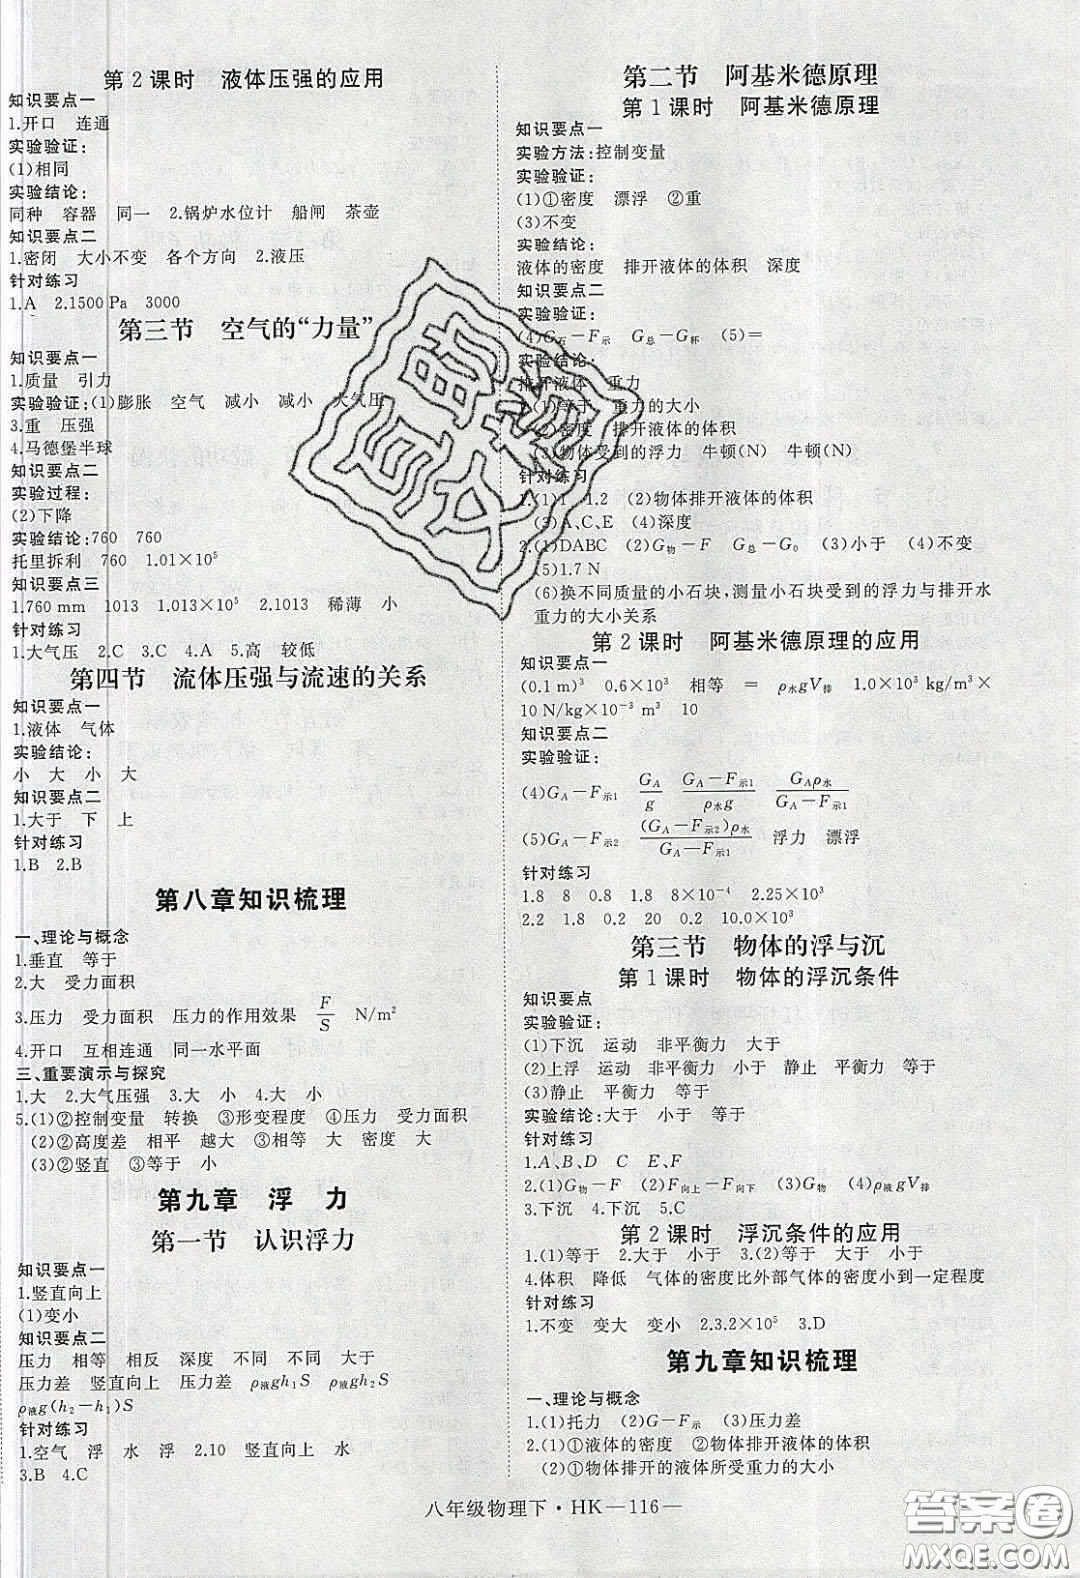 第2课时 液体压强的应用
知识要点一
1.开口 连通
实验验证:
(1)相同
实验结论:
同种 容器 同一 2.锅炉水位计 船闸 茶壶
知识要点二
1.密闭 大小不变 各个方向 2.液压
针对练习
1.A 2.1500 Pa 3000
第三节 空气的“力量”
知识要点一
1.质量 引力
实验验证:(1)膨胀 空气 减小 减小 大气压
3.重 压强
4.马德堡半球
知识要点二
实验过程:
(2)下降
实验结论:760 760
托里拆利 760 1.01×10⁵
知识要点三
1.760 mm 1013 1.013×10⁵ 2.1013 稀薄 小
针对练习
1.大气压 2.C 3.C 4.A 5.高 较低
第四节 流体压强与流速的关系
知识要点一
1.液体 气体
实验结论:
小 大 小 大
知识要点二
1.大于 下 上
针对练习
1.B 2.B
第八章知识梳理
一、理论与概念
1.垂直 等于
2.大 受力面积
3.压力 受力面积 压力的作用效果 F/S N/m²
4.开口 互相连通 同一水平面
三、重要演示与探究
1.大 2.大气压强 3.大 小 4.大 小
5.(1)②控制变量 转换 ③形变程度 ④压力 受力面积
(2)②高度差 相平 越大 ③相等 大 密度 大
(3)②竖直 ③等于 小
第九章 浮 力
第一节 认识浮力
知识要点一
1.竖直向上
(1)变小
知识要点二
压力 相等 相反 深度 不同 不同 大于
压力差 竖直向上 压力差 ρ液gh₁S ρ液gh₂S
ρ液g(h₂−h₁)S
针对练习
1.空气 浮 水 浮 2.10 竖直向上 水
3.B 4.C
第二节 阿基米德原理
第1课时 阿基米德原理
知识要点一
实验方法:控制变量
实验验证:
(1)①密度 漂浮 ②重
(3)不变
实验结论:
液体的密度 排开液体的体积 深度
知识要点二
实验验证:
(4)G石−F示 G总−G杯 (5)=
实验结论:
排开液体 重力
1.(1)等于 重力的大小
(2)密度 排开液体的体积
(3)物体受到的浮力 牛顿(N) 牛顿(N)
针对练习
1.(1)1 1.2 (2)物体排开液体的体积
(3)A、C、E (4)深度
2.(1)DABC (2)G物−F G总−G₀ (3)小于 (4)不变
(5)1.7 N
(6)换不同质量的小石块,测量小石块受到的浮力与排开水
重力的大小关系
第2课时 阿基米德原理的应用
知识要点一
(0.1 m)³ 0.6×10³ 相等 = ρ水gV排 1.0×10³ kg/m³×
10 N/kg×10⁻³ m³ 10
知识要点二
实验验证:
(4)GA−F示1 GA/g (GA−F示1)/(ρ水g) GAρ水/(GA−F示1)
(5)GA−F示2 (GA−F示2)ρ水/(GA−F示1) 浮力 漂浮
针对练习
1.8 8 0.8 1.8 8×10⁻⁴ 2.25×10³
2.2 1.8 20 0.2 10.0×10³
第三节 物体的浮与沉
第1课时 物体的浮沉条件
知识要点
实验验证:
(1)下沉 运动 非平衡力 大于
(2)上浮 运动 非平衡力 小于 静止 平衡力 等于
(3)静止 平衡力 等于
实验结论:大于 小于 等于
针对练习
1.A、B、D C F、E
2.(1)G物−F (2)F向上−F向下 (3)G物 (4)ρ液gV排
3.下沉 4.下沉 5.C
第2课时 浮沉条件的应用
1.(1)等于 2.大于 小于 3.(2)等于 大于 小于
4.体积 降低 气体的密度比外部气体的密度小到一定程度
针对练习
1.不变 变大 变小 2.3.2×10⁵ 3.D
第九章知识梳理
一、理论与概念
1.(1)托力 (2)G−F示 (3)压力差
2.(1)①液体的密度 ②物体排开液体的体积
(2)①物体排开的液体所受重力的大小
八年级物理下·HK—116—
答案圈
MXQE.COM